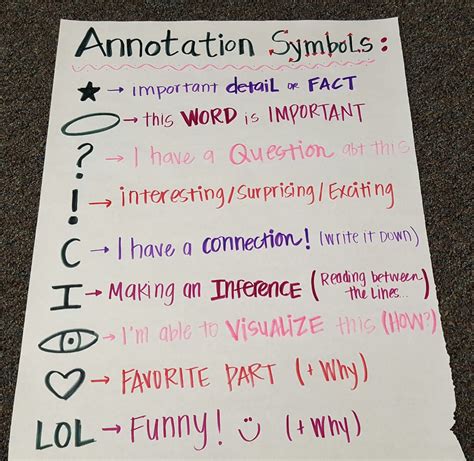 Annotation Symbols:
★ → important detail or FACT
→ this WORD is IMPORTANT
? → I have a Question abt this
! → interesting/Surprising/Exciting
C → I have a connection! (write it Down)
I → Making an Inference (Reading between the Lines...)
→ I'm able to VISUALIZE this (HOW?)
♡ → FAVORITE PART (+ Why)
LOL → Funny! (+ Why)